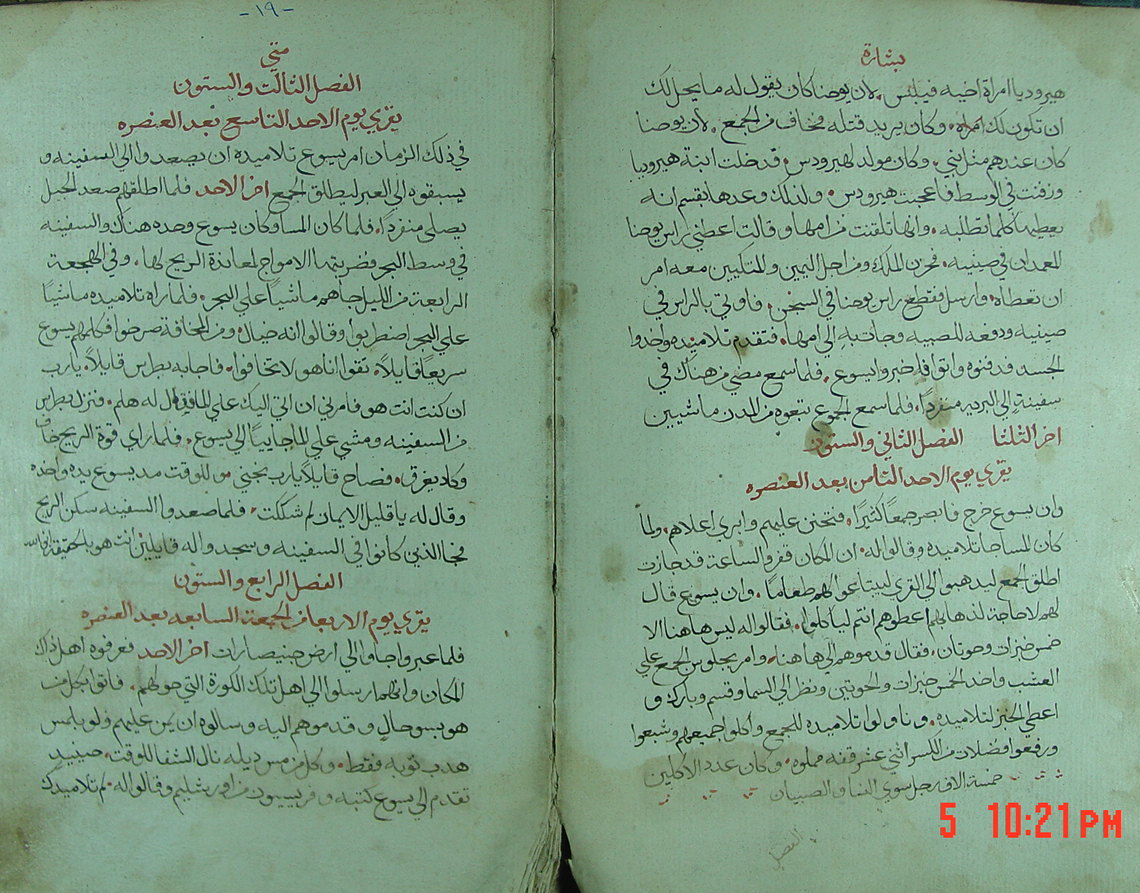 بشارة
هيروديا امراة اخيه فيلبس. لان يوحنا كان يقول له ما يحل لك
ان تكون لك امراة. وكان يريد قتله فخاف من الجمع. لان يوحنا
كان عندهم مثل نبي. وكان مولد لهيرودس. فدخلت ابنة هيروديا
ورقصت في الوسط فاعجبت هيرودس. ولذلك وعدها بقسم انه
يعطيها كلما تطلبه. وانها تلقنت من امها وقالت اعطني راس يوحنا
المعمدان في صينيه. فحزن الملك ومن اجل اليمين والمتكيين معه امر
ان تعطاه. وارسل فقطع راس يوحنا في السجن. فاوتي بالراس في
صينيه ودفعه للصبيه وجات به الي امها. فتقدم تلاميذه واخدوا
الجسد فدفنوه واتوا فاخبروا ليسوع. فلما سمع مضي من هناك في
سفينة الي البريه منفردا. فلما سمع الجموع تبعوه من المدن ماشيين
اخر الثلثا الفصل الثاني والستون
يقري يوم الاحد الثامن بعد العنصره
وان يسوع خرج فابصر جمعا كثيرا. فتحنن عليهم وابري اعلاهم. ولما
كان المسا جا تلاميذه وقالوا له. ان المكان قفر والساعة قد جازت
اطلق الجمع ليذهبوا الي القري ليبتاعوا لهم طعاما. وان يسوع قال
لهم لا حاجة لذهابهم اعطوهم انتم لياكلوا. فقالوا له ليس هاهنا الا
خمس خبزات وحوتان. فقال قدموهم الي هاهنا. وامر بجلوس الجمع علي
العشب واخد الخمس خبزات والحوتين ونظر الي السما وقسم وبارك و
اعطي الخبز لتلاميذه. وناولوا تلاميذه للجمع واكلوا جميعهم وشبعوا
ورفعوا فضلات من الكسر اثني عشر قفه مملوه. وكان عدد الاكلين
خمسة الاف رجل سوي النسا والصبيان
الفصل
-١٩-
متي
الفصل الثالث والستون
يقري يوم الاحد التاسع بعد العنصره
في ذلك الزمان امر يسوع تلاميذه ان يصعدوا الي السفينه و
يسبقوه الي العبر ليطلق الجمع اخر الاحد فلما اطلقهم صعد الجبل
يصلي منفردا. فلما كان المسا وكان يسوع وحده هناك والسفينه
في وسط البحر وضربتها الامواج لمعاندة الريح لها. وفي الهجعة
الرابعة من الليل جاهم ماشيا علي البحر. فلما راه تلاميذه ماشيا
علي البحر اضطربوا وقالوا انه خيال. ومن المخافة صرخوا فكلمهم يسوع
سريعا قايلا. تقوا انا هو لا تخافوا. فاجابه بطرس قايلا. يارب
ان كنت انت هو فامرني ان اتي اليك علي الما فقال له هلم. فنزل بطرس
من السفينه ومشي علي الما جاييا الي يسوع. فلما راي قوة الريح خاف
وكاد يغرق. فصاح قايلا يارب نجني وللوقت مد يسوع يده واخده
وقال له يا قليل الايمان لم شككت. فلما صعدوا السفينه سكن الريح
فجا الذين كانوا في السفينه وسجدوا له قايلين انت هو بالحقيقة
الفصل الرابع والستون
يقري يوم الاربعا من الجمعة السابعه بعد العنصره
فلما عبروا جاوا الي ارض جنيصارات اخر الاحد فعرفوه اهل ذاك
المكان وانهم ارسلوا الي اهل تلك الكورة التي حولهم. فاتوا بكل من
هو بسو حال وقدموهم اليه وسالوه ان يمن عليهم ولو بلمس
هدب توبه فقط. وكل من مس ديله نال الشفا للوقت. حينيد
تقدم الي يسوع كتبه وفريسيون من اورشليم وقالوا له. لم تلاميدك
5 10:21PM